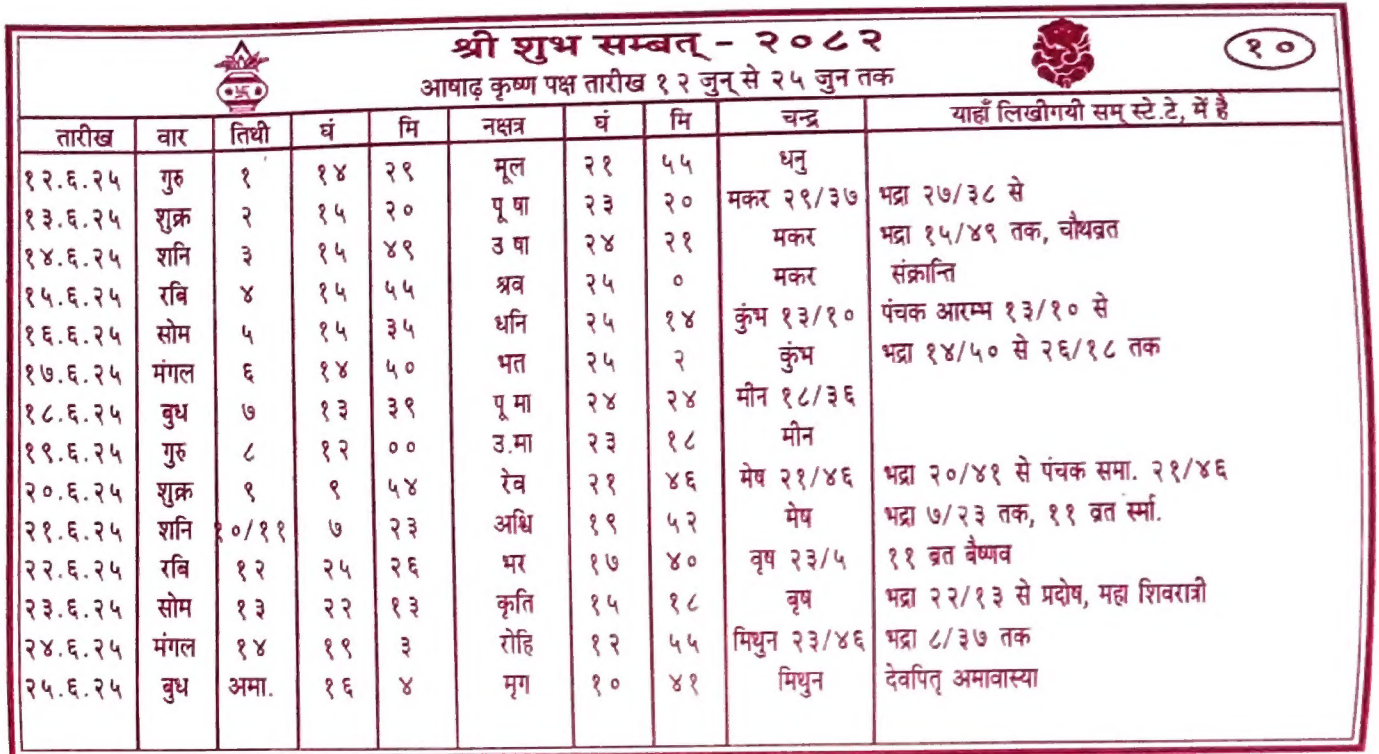 श्री शुभ सम्बत् - २०८२
१०
आषाढ़ कृष्ण पक्ष तारीख १२ जुन् से २५ जुन तक
तारीख वार तिथी घं मि नक्षत्र घं मि चन्द्र याहाँ लिखीगयी सम् स्टे.टे, में है
१२.६.२५ गुरु १ १४ २९ मूल २१ ५५ धनु
१३.६.२५ शुक्र २ १५ २० पू षा २३ २० मकर २९/३७ भद्रा २७/३८ से
१४.६.२५ शनि ३ १५ ४९ उ षा २४ २१ मकर भद्रा १५/४९ तक, चौथव्रत
१५.६.२५ रबि ४ १५ ५५ श्रव २५ ० मकर संक्रान्ति
१६.६.२५ सोम ५ १५ ३५ धनि २५ १४ कुंभ १३/१० पंचक आरम्भ १३/१० से
१७.६.२५ मंगल ६ १४ ५० भत २५ २ कुंभ भद्रा १४/५० से २६/१८ तक
१८.६.२५ बुध ७ १३ ३९ पू मा २४ २४ मीन १८/३६
१९.६.२५ गुरु ८ १२ ०० उ.मा २३ १८ मीन
२०.६.२५ शुक्र ९ ९ ५४ रेव २१ ४६ मेष २१/४६ भद्रा २०/४१ से पंचक समा. २१/४६
२१.६.२५ शनि १०/११ ७ २३ अश्वि १९ ५२ मेष भद्रा ७/२३ तक, ११ व्रत र्स्मा.
२२.६.२५ रबि १२ २५ २६ भर १७ ४० वृष २३/५ ११ ब्रत बैष्णव
२३.६.२५ सोम १३ २२ १३ कृति १५ १८ वृष भद्रा २२/१३ से प्रदोष, महा शिवरात्री
२४.६.२५ मंगल १४ १९ ३ रोहि १२ ५५ मिथुन २३/४६ भद्रा ८/३७ तक
२५.६.२५ बुध अमा. १६ ४ मृग १० ४१ मिथुन देवपितृ अमावास्या